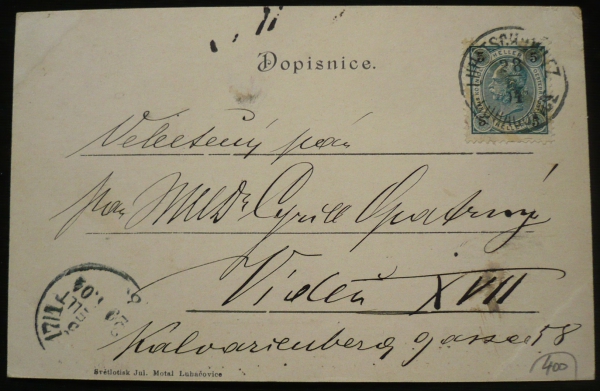 Dopisnice.
Velectěný pán
pan MUDr Cyrill Opatrný
Vídeň XVII
Kalvarienberg gasse 58
Světlotisk Jul. Motal Luhačovice
400